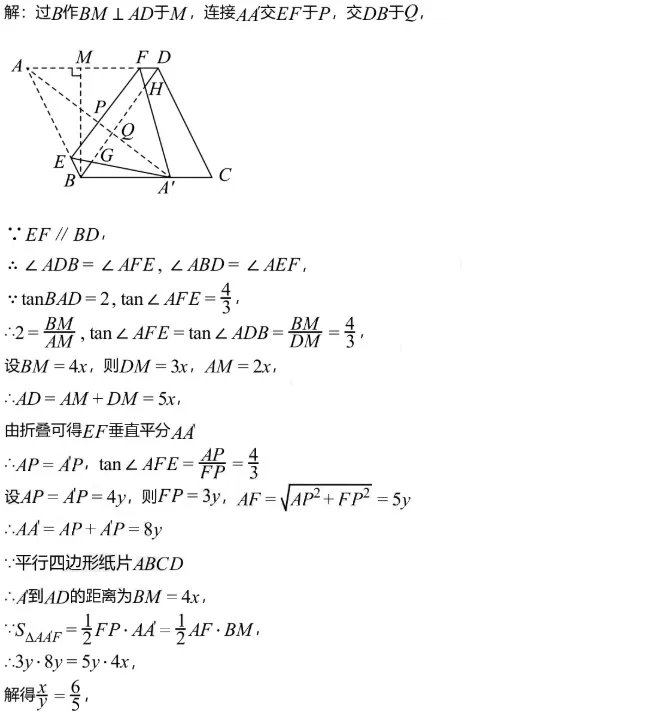 解：过B作BM⊥AD于M，连接AA′交EF于P，交DB于Q，
A M F D
H
P
Q
E G
B A′ C
∵EF∥BD，
∴∠ADB=∠AFE，∠ABD=∠AEF，
∵tanBAD=2，tan∠AFE=4/3，
∴2=BM/AM，tan∠AFE=tan∠ADB=BM/DM=4/3，
设BM=4x，则DM=3x，AM=2x，
∴AD=AM+DM=5x，
由折叠可得EF垂直平分AA′
∴AP=A′P，tan∠AFE=AP/FP=4/3
设AP=A′P=4y，则FP=3y，AF=√(AP²+FP²)=5y
∴AA′=AP+A′P=8y
∵平行四边形纸片ABCD
∴A′到AD的距离为BM=4x，
∵S△AA′F=1/2FP·AA′=1/2AF·BM，
∴3y·8y=5y·4x，
解得x/y=6/5，